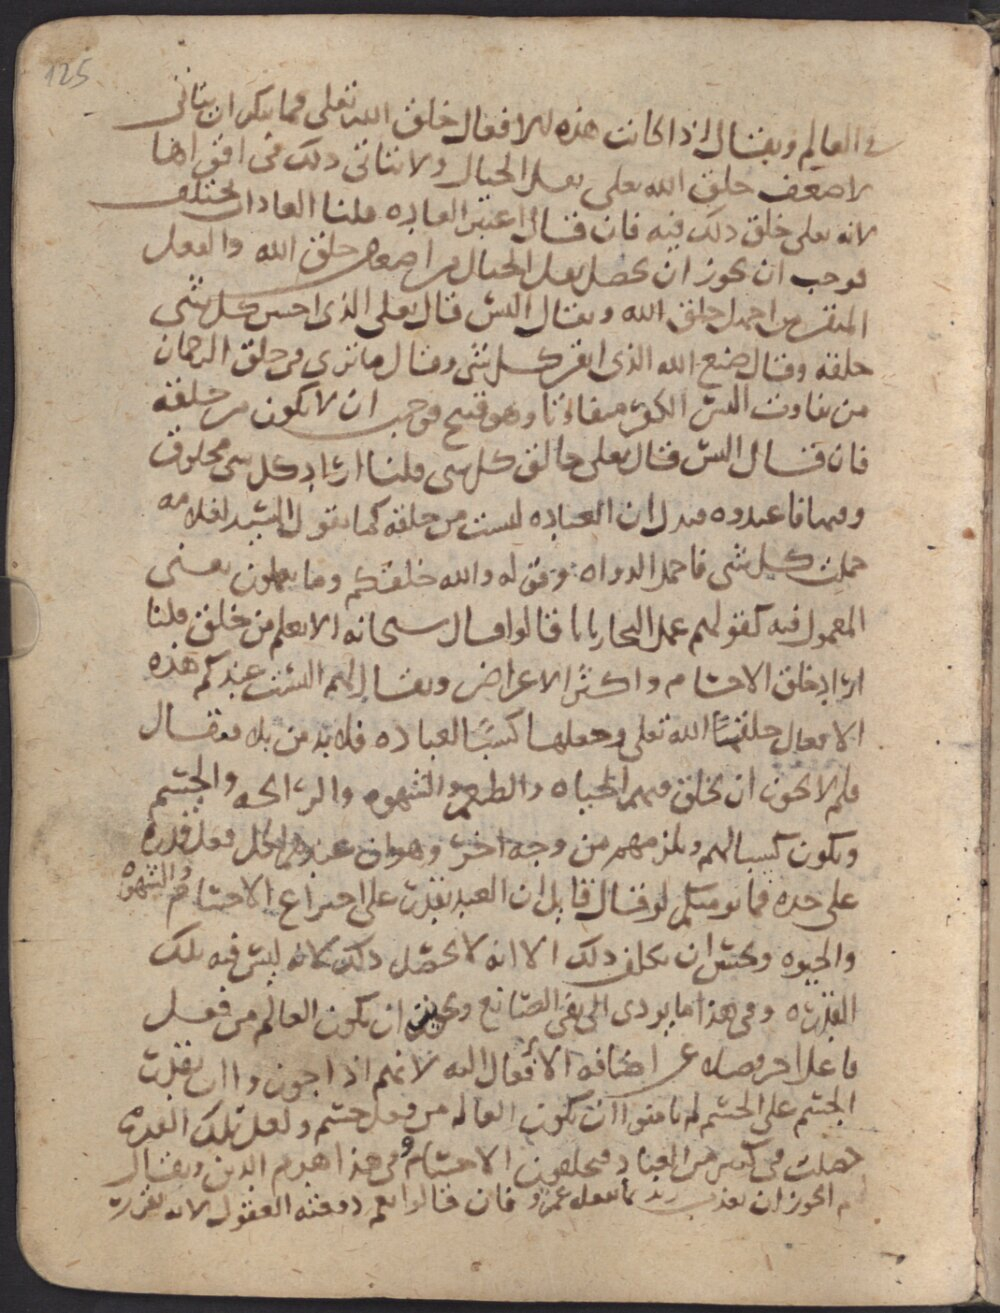 125
في العالم ويقال اذا كانت هذه الافعال خلق الله تعلى فما ينكر ان يتاتى
لاضعف خلق الله تعلى نقل الجبال ولا يتاتى ذلك في اقواها
لانه تعلى خلق ذلك فيه فان قال اعتبر العاده قلنا العادات تختلف
فوجب ان يجوز ان يحصل نقل الجبال من اضعف خلق الله والفعل
المتقن من اجهل خلق الله ويقال اليس قال تعلى الذي احسن كل شي
خلقه وقال صنع الله الذي اتقن كل شي وقال ما ترى في خلق الرحمان
من تفاوت اليس الكفر متفاوتا وهو قبيح فوجب ان لا يكون من خلقه
فان قال اليس قال تعلى خالق كل شي قلنا اراد كل شي مخلوق
فاعبدوه فبدل ان العباده ليست من خلقه كما يقول السيد لغلامه
حملت كل شي فاحمل الدواه وقوله والله خلقكم وما تعملون يعني
المعمول فيه كقولهم عمل النجار بابا قالوا قال سبحانه الا يعلم من خلق قلنا
اراد خلق الاجسام واكثر الاعراض ويقال لهم اليست عندكم هذه
الافعال خلقها الله تعلى وجعلها كسبا لعباده فلا بد من بلا فيقال
فلم لا يجوز ان يخلق فيهم الحياه والطعم والشهوه والرائحه والجسم
ويكون كسبا لهم ويلزمهم من وجه اخر وهو ان عندهم لكل فعل قدره
على حده فما يومنكم لو قال قايل ان العبد يقدر على اختراع الاجسام والشهوه
والحيوه ويحسن ان يكلف ذلك الا انه لا يحصل ذلك لانه ليس فيه تلك
القدره وفي هذا ما يودي الى نفي الصانع ويجوز ان يكون العالم من فعل
فاعل اخر اضافه الافعال اليه لانهم اذا جوزوا ان يقدر
الجسم على الجسم لم يامنوا ان يكون العالم من فعل جسم ولعل تلك القدره
حصلت في كثير من العباد فيخلقون الاجسام وفي هذا هدم الدين ويقال
لهم ايجوز ان يعذب زيد بما يفعله عمرو فان قالوا نعم دفعته العقول لانه تقرر